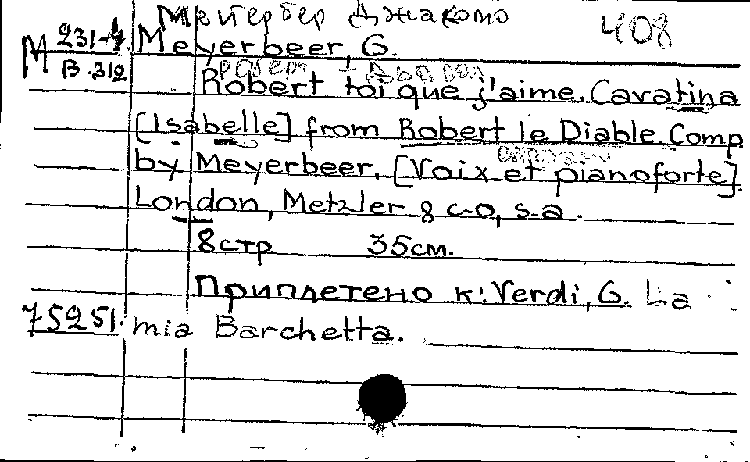 Мейербер Джакомо 408
М 231-4 Meyerbeer, G.
В.312
Robert toi que j'aime. Cavatina
[Isabelle] from Robert le Diable. Comp
by Meyerbeer. [Voix et pianoforte].
London, Metzler & c-o, s-a.
8 стр 35 см.
Приплетено к: Verdi, G. La
75251. mia Barchetta.